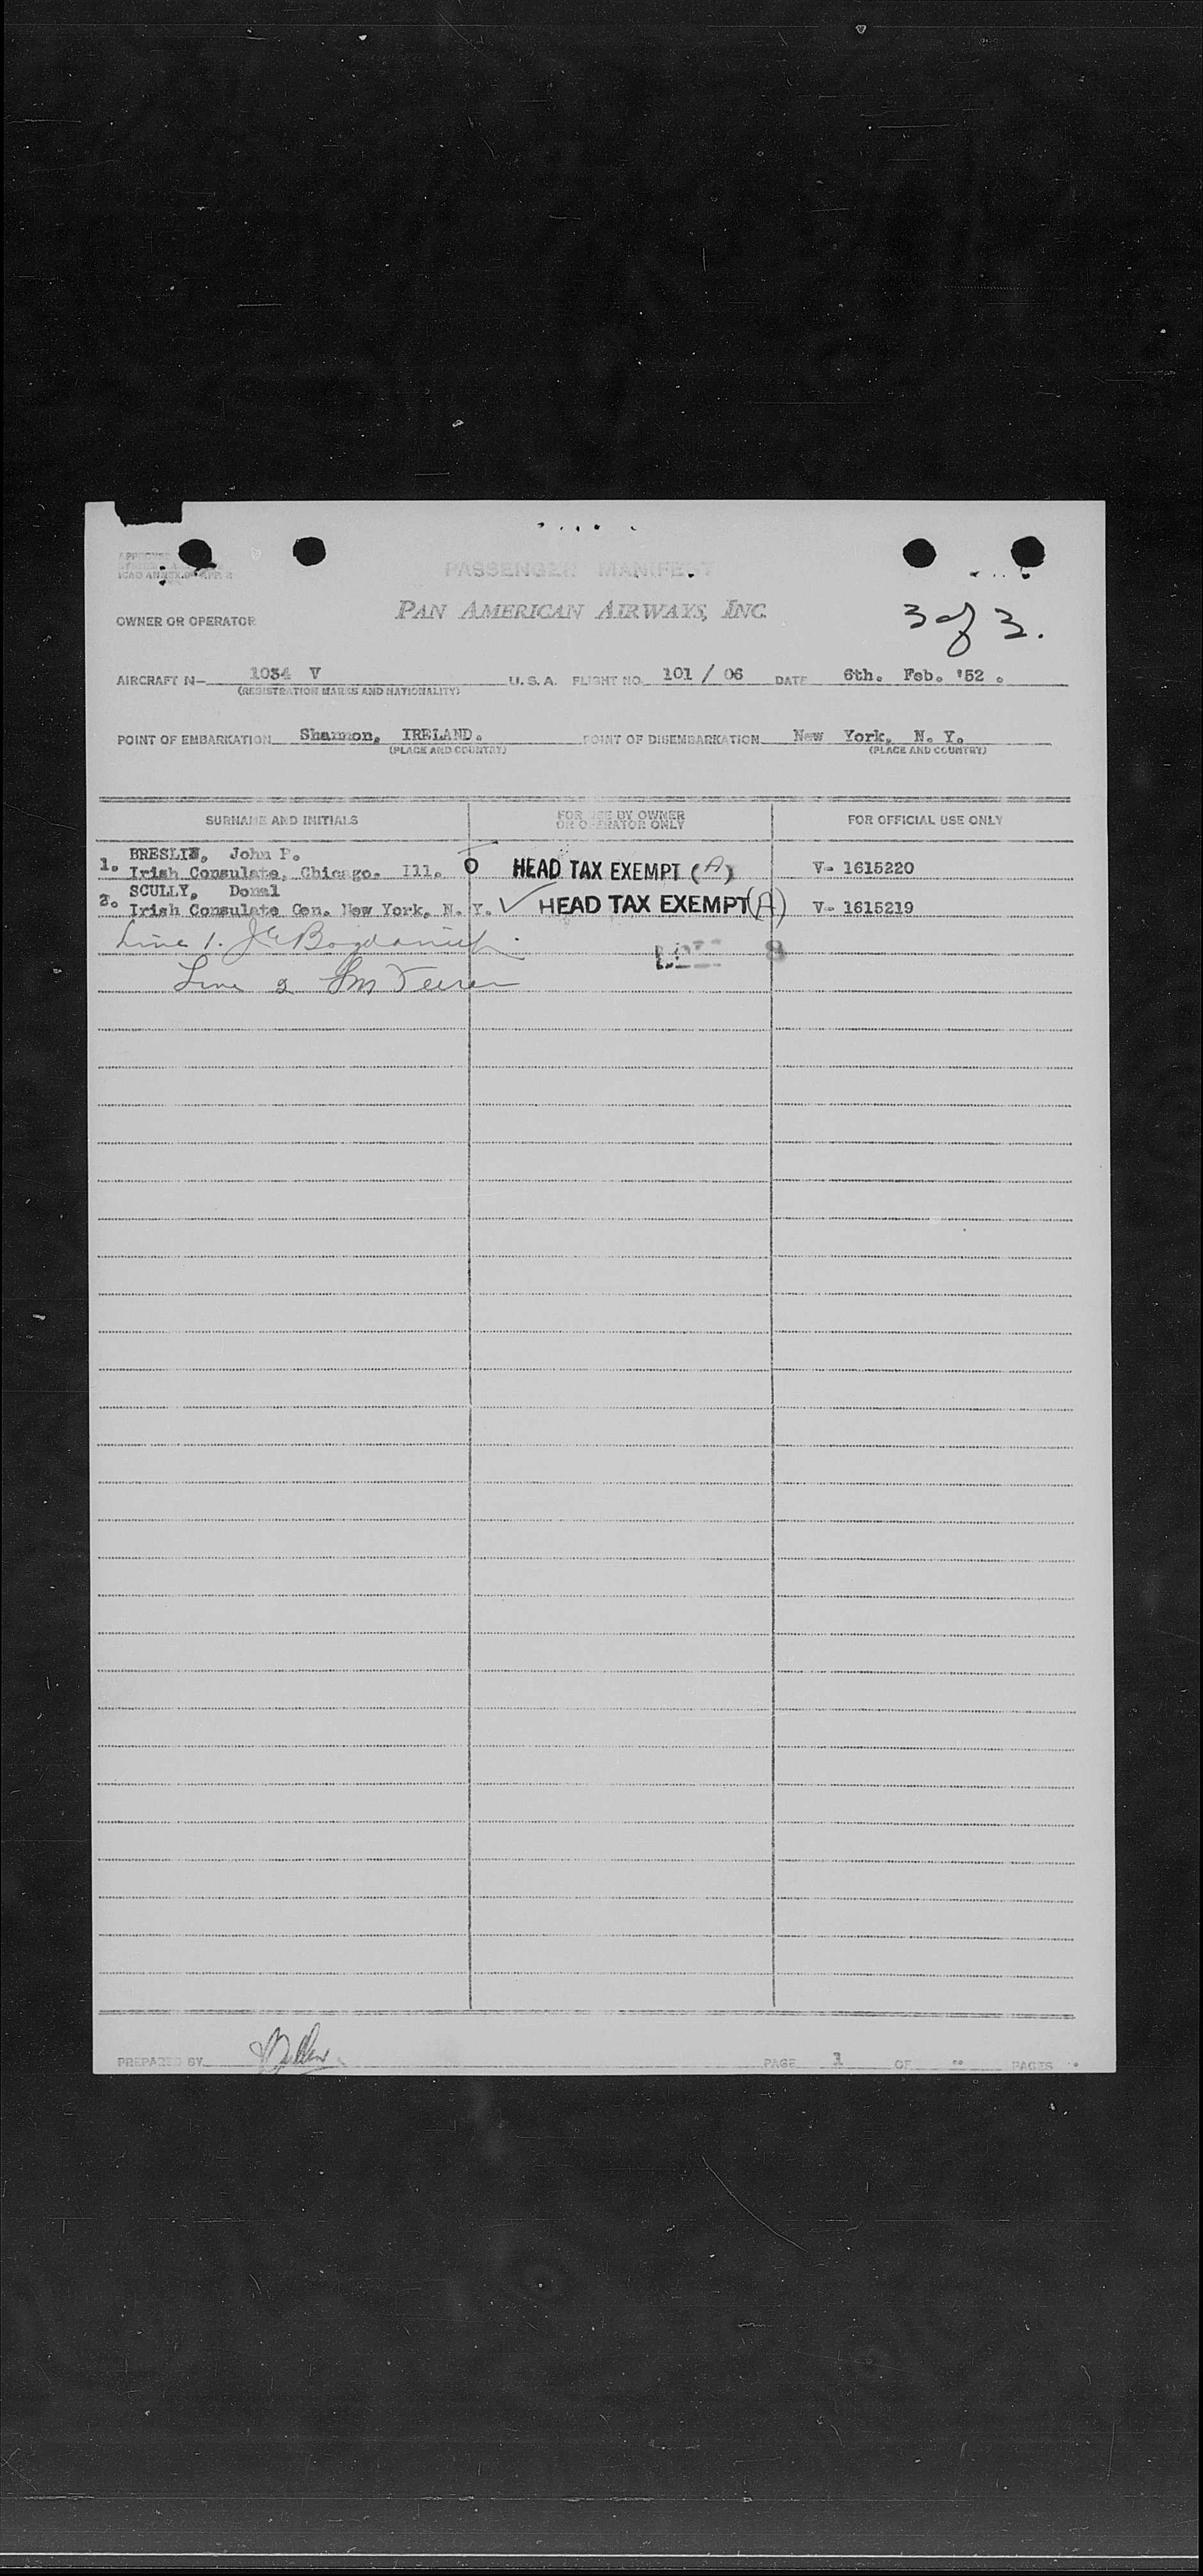 APPROVED
ICAO ANNEX 9 APP. 2
PASSENGER MANIFEST
OWNER OR OPERATOR
PAN AMERICAN AIRWAYS, INC.
3 of 3.
AIRCRAFT N- 1034 V U. S. A. FLIGHT NO. 101 / 06 DATE 6th. Feb. '52 .
(REGISTRATION MARKS AND NATIONALITY)
POINT OF EMBARKATION Shannon, IRELAND. POINT OF DISEMBARKATION New York, N. Y.
(PLACE AND COUNTRY) (PLACE AND COUNTRY)
SURNAME AND INITIALS FOR USE BY OWNER OR OPERATOR ONLY FOR OFFICIAL USE ONLY
BRESLIN, John P.
1. Irish Consulate, Chicago. Ill. O HEAD TAX EXEMPT (A) V- 1615220
SCULLY, Donal
2. Irish Consulate Gen. New York, N. Y. ✓ HEAD TAX EXEMPT (A) V- 1615219
Line 1.
8
Line 2
PREPARED BY PAGE 1 OF -- PAGES